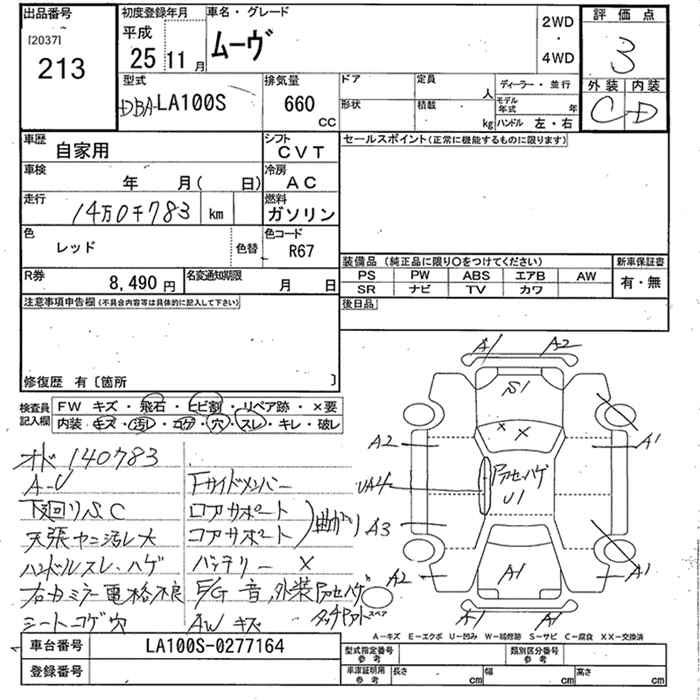 出品番号
[2037]
213
初度登録年月
平成
25 11 月
車名・グレード
ムーヴ
2WD
・
4WD
評価点
3
外装 内装
C D
型式
DBA-LA100S
排気量
660
cc
ドア
形状
定員
人
積載
kg
ディーラー・並行
モデル年式 年
ハンドル 左・右
車歴
自家用
シフト
CVT
車検
年 月( 日)
冷房
AC
走行
14万0千783 km
燃料
ガソリン
色
レッド
色替
色コード
R67
R券
8,490 円
名変通知期限
月 日
セールスポイント(正常に機能するものに限ります)
装備品(純正品に限り○をつけてください)
PS PW ABS エアB AW
SR ナビ TV カワ
新車保証書
有・無
後日品
注意事項申告欄(不具合内容等は具体的に記入して下さい)
修復歴 有〔箇所 〕
検査員記入欄
FW キズ・飛石・ヒビ割・リペア跡・×要
内装 キズ・汚レ・コゲ・穴・スレ・キレ・破レ
オド 140783
A-U
下廻りSC
天張ヤニ汚レ大
ハンドルスレ、ハゲ
右カミラー電格不良
シートコゲ穴
Fサイドメンバー
ロアサポート
コアサポート
曲がり
バッテリー ×
E/G音、外装アセハゲ
タッチアト
AW キズ
A1 A2
S1
× ×
A2 A1
アセハゲ
UA4
U1
A3
A2 A1
A1
A1 A1
スペア
A-キズ E-エクボ U-凹み W-補修跡 S-サビ C-腐食 XX-交換済
車台番号
LA100S-0277164
登録番号
型式指定番号
参考
類別区分番号
参考
車庫証明用
参考
長さ cm
幅 cm
高さ cm